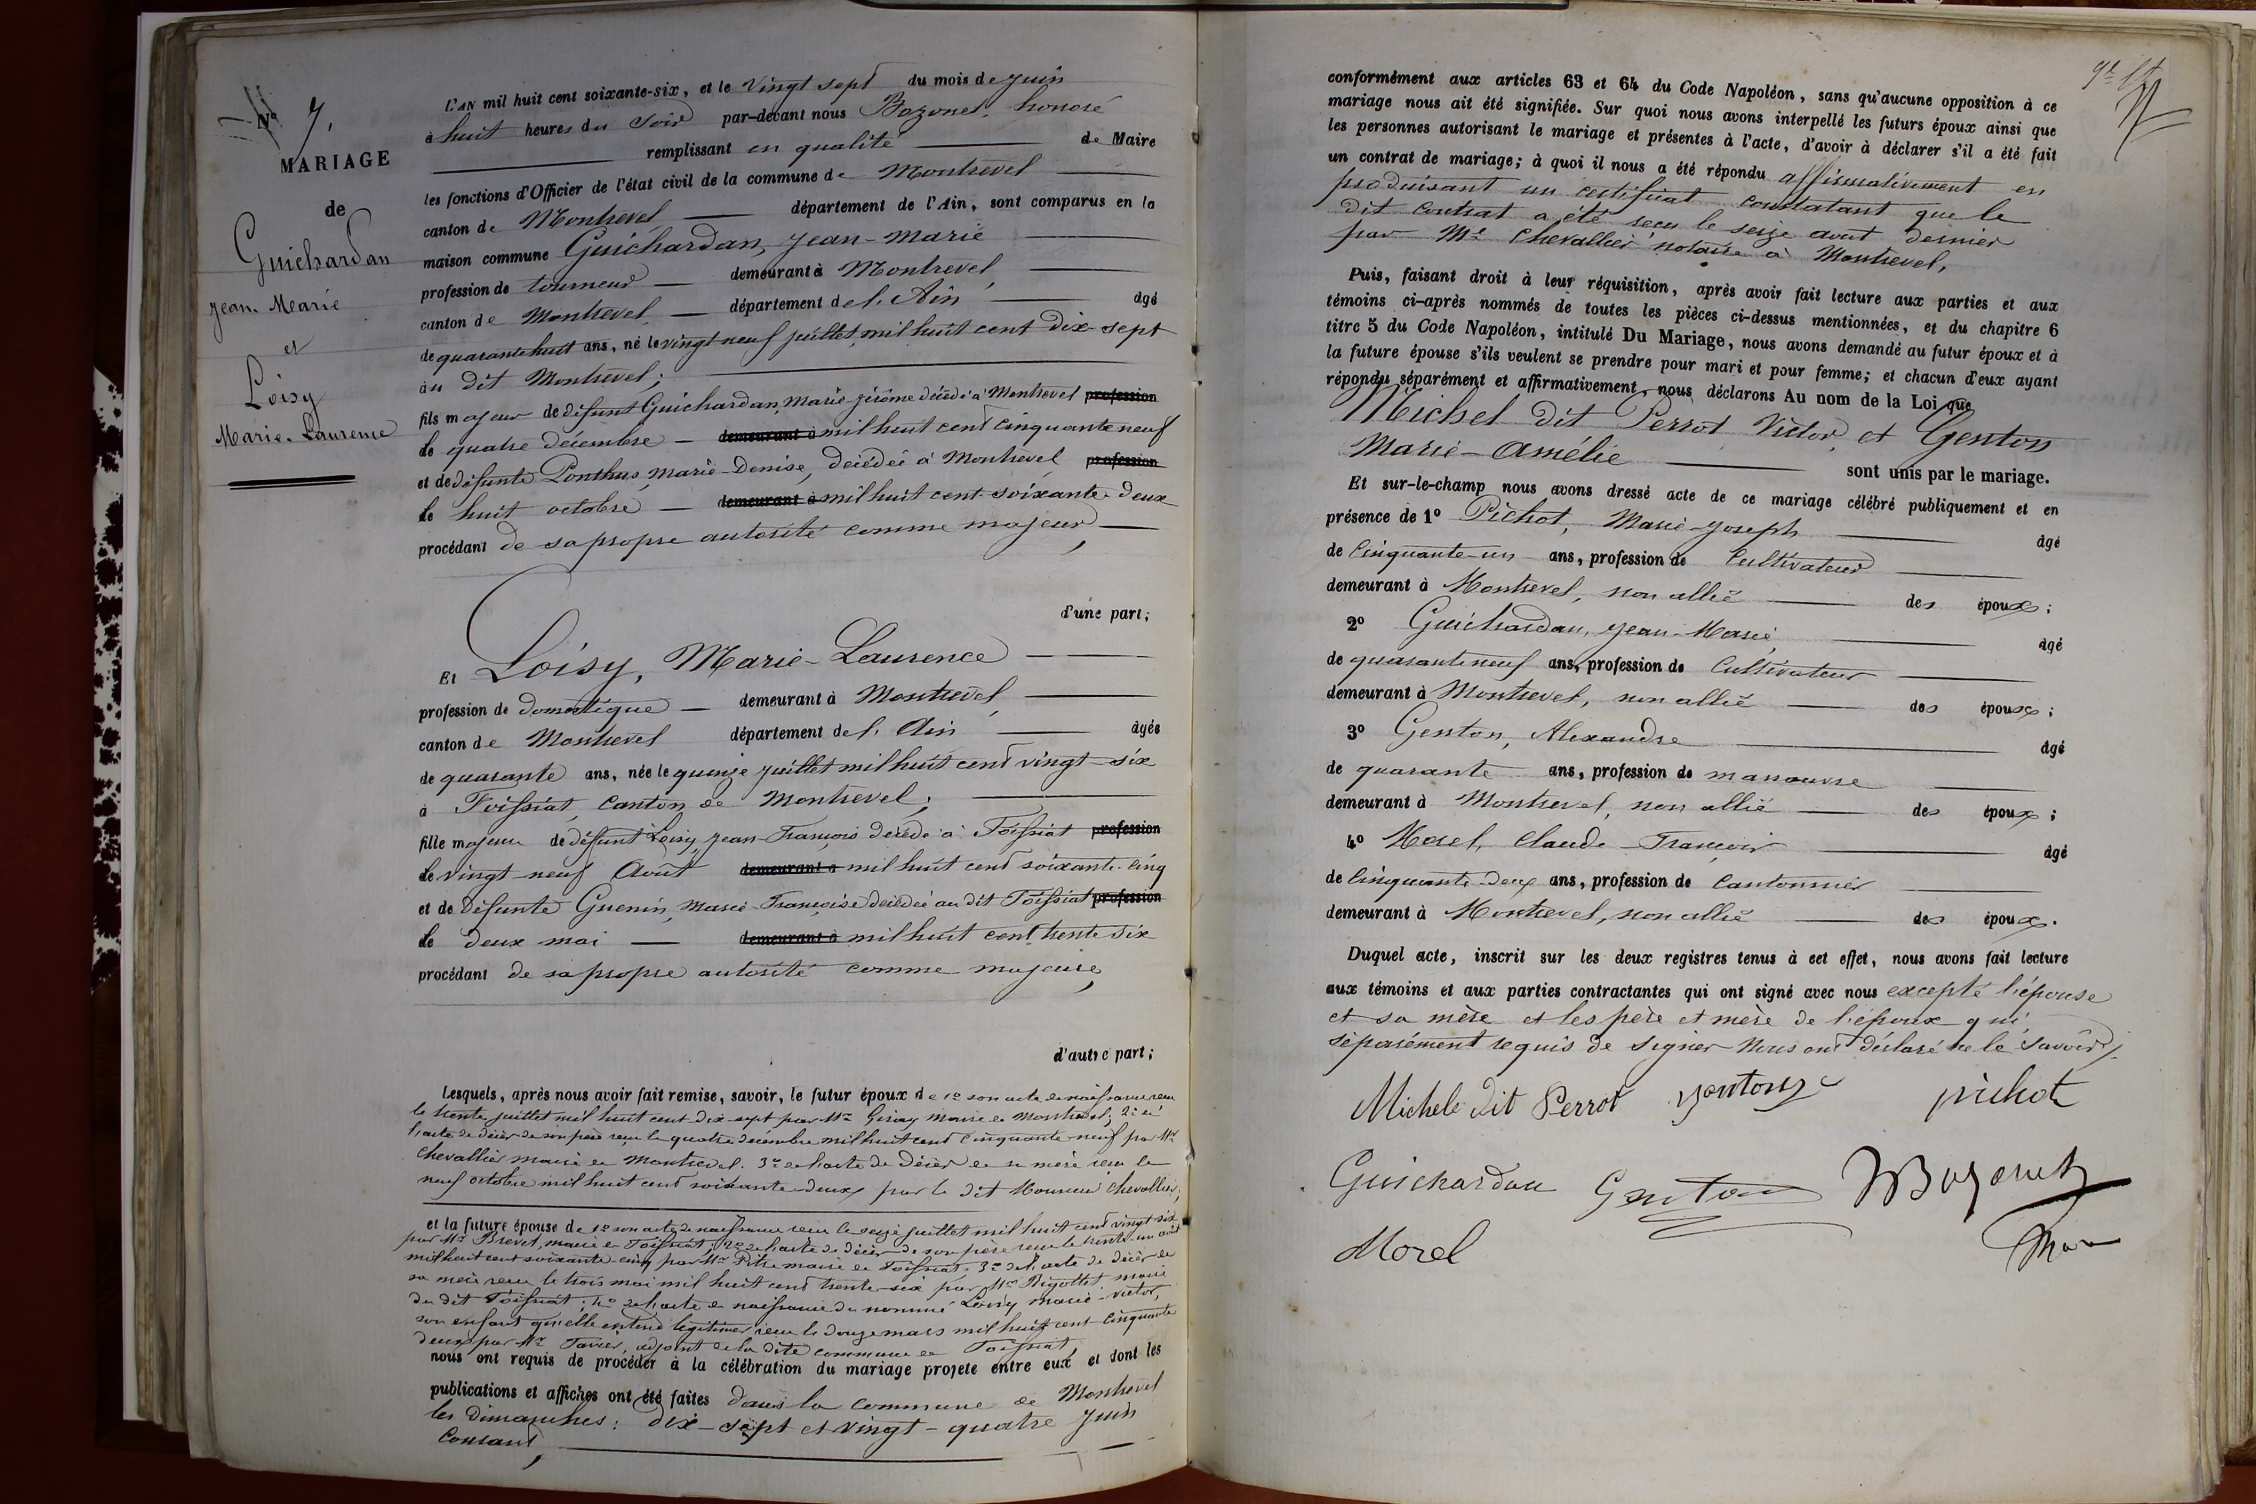 No 7.
MARIAGE
de
Guichardan
Jean-Marie
et
Loisy
Marie-Laurence
L'AN mil huit cent soixante-six, et le Vingt sept du mois de Juin
à huit heures du Soir par-devant nous Bozonet, honoré
remplissant en qualité de Maire
les fonctions d'Officier de l'état civil de la commune de Montrevel
canton de Montrevel département de l'Ain, sont comparus en la
maison commune Guichardan, Jean-Marie
profession de tourneur demeurant à Montrevel,
canton de Montrevel département de l'Ain âgé
de quarante huit ans, né le vingt neuf juillet, mil huit cent dix-sept
au dit Montrevel;
fils majeur de défunt Guichardan, Marie-jérôme décédé à Montrevel profession
le quatre décembre demeurant à mil huit cent cinquante neuf
et de défunte Ponthus, Marie-Denise, décédée à Montrevel, profession
le huit octobre demeurant à mil huit cent soixante-deux
procédant de sa propre autorité comme majeur,
d'une part;
Et Loisy, Marie-Laurence
profession de domestique demeurant à Montrevel,
canton de Montrevel département de l'Ain âgée
de quarante ans, née le quinze juillet mil huit cent vingt-six
à Foissiat, canton de Montrevel;
fille majeure de défunt Loisy, Jean-François décédé à Foissiat profession
le vingt-neuf Août demeurant à mil huit cent soixante-cinq
et de défunte Guenin, Marie-Françoise décédée au dit Foissiat profession
le deux mai demeurant à mil huit cent trente six
procédant de sa propre autorité comme majeure,
d'autre part;
Lesquels, après nous avoir fait remise, savoir, le futur époux de 1º son acte de naissance reçu
le trente juillet mil huit cent dix-sept par Mr maire de Montrevel; 2º de
l'acte de décès de son père reçu le quatre décembre mil huit cent cinquante-neuf par Mr
Chevallier maire de Montrevel. 3º de l'acte de décès de sa mère reçu le
neuf octobre mil huit cent soixante-deux, par le dit Monsieur Chevallier,
et la future épouse de 1º son acte de naissance reçu le seize juillet mil huit cent vingt-six
par Mr Brevet, maire de Foissiat; 2º de l'acte de décès de son père reçu le trente-un août
mil huit cent soixante-cinq par Mr maire de Foissiat. 3º de l'acte de décès de
sa mère reçu le trois mai mil huit cent trente-six par Mr Rigollet maire
du dit Foissiat; 4º de l'acte de naissance du nommé Loisy Marie-Victor,
son enfant qu'elle entend légitimer, reçu le douze mars mil huit cent cinquante
deux par Mr adjoint de la dite commune de Foissiat,
nous ont requis de procéder à la célébration du mariage projeté entre eux et dont les
publications et affiches ont été faites dans la commune de Montrevel
les dimanches: dix-sept et vingt-quatre Juin
Courant,
conformément aux articles 63 et 64 du Code Napoléon, sans qu'aucune opposition à ce
mariage nous ait été signifiée. Sur quoi nous avons interpellé les futurs époux ainsi que
les personnes autorisant le mariage et présentes à l'acte, d'avoir à déclarer s'il a été fait
un contrat de mariage; à quoi il nous a été répondu affirmativement en
produisant un certificat constatant que le
dit contrat a été reçu le seize avril dernier
par Me Chevallier notaire à Montrevel,
Puis, faisant droit à leur réquisition, après avoir fait lecture aux parties et aux
témoins ci-après nommés de toutes les pièces ci-dessus mentionnées, et du chapitre 6
titre 5 du Code Napoléon, intitulé Du Mariage, nous avons demandé au futur époux et à
la future épouse s'ils veulent se prendre pour mari et pour femme; et chacun d'eux ayant
répondu séparément et affirmativement, nous déclarons Au nom de la Loi que
Michel dit Perrot Victor, et Genton
Marie-Amélie sont unis par le mariage.
Et sur-le-champ nous avons dressé acte de ce mariage célébré publiquement et en
présence de 1º Pichot, Marie-Joseph âgé
de Cinquante-un ans, profession de Cultivateur
demeurant à Montrevel, non allié des époux;
2º Guichardan, Jean-Marie, âgé
de quarante neuf ans, profession de Cultivateur
demeurant à Montrevel, non allié des époux;
3º Genton, Alexandre âgé
de quarante ans, profession de manœuvre
demeurant à Montrevel, non allié des époux;
4º Morel, Claude-François âgé
de Cinquante-deux ans, profession de Cantonnier
demeurant à Montrevel, non allié des époux.
Duquel acte, inscrit sur les deux registres tenus à cet effet, nous avons fait lecture
aux témoins et aux parties contractantes qui ont signé avec nous excepté l'épouse
et sa mère et les père et mère de l'époux qui
séparément requis de signer nous ont déclaré ne le savoir,
Michele dit Perrot pichot
Guichardan Genton Bozonet
Morel